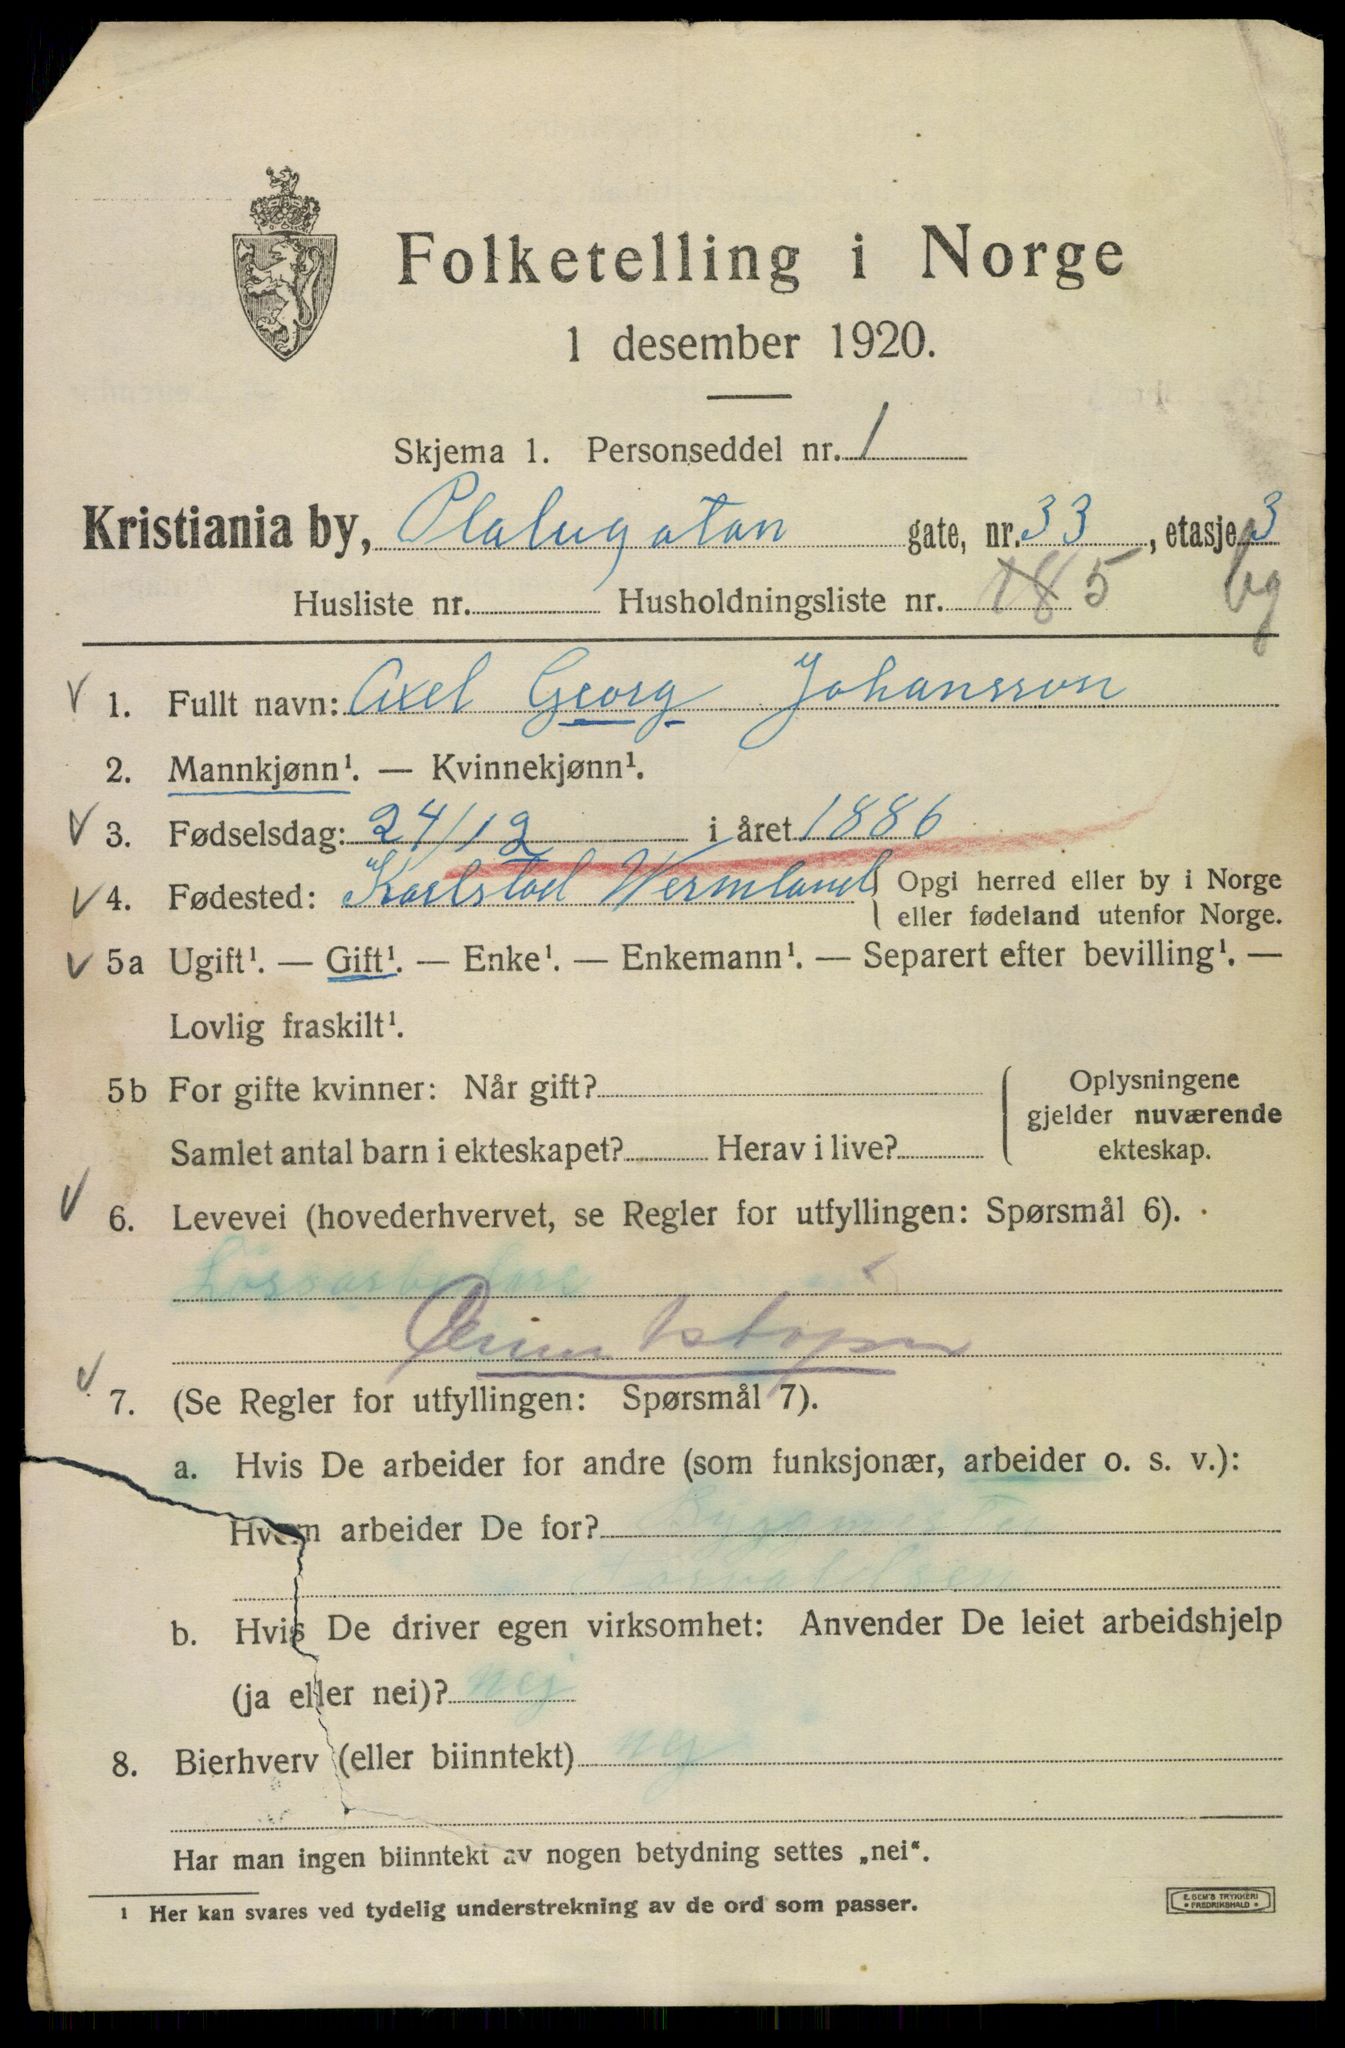 Folketelling i Norge
1 desember 1920.
Skjema 1. Personseddel nr. 1
Kristiania by, gate, nr. 33, etasje 3
Husliste nr. Husholdningsliste nr. 5 bg
1. Fullt navn: Axel Georg Johansson
2. Mannkjønn¹. — Kvinnekjønn¹.
3. Fødselsdag: 24/12 i året 1886
4. Fødested: Karlstad Wermland { Opgi herred eller by i Norge
eller fødeland utenfor Norge.
5a Ugift¹. — Gift¹. — Enke¹. — Enkemann¹. — Separert efter bevilling¹. —
Lovlig fraskilt¹.
5b For gifte kvinner: Når gift? { Oplysningene
gjelder nuværende
Samlet antal barn i ekteskapet? Herav i live? ekteskap.
6. Levevei (hovederhvervet, se Regler for utfyllingen: Spørsmål 6).
7. (Se Regler for utfyllingen: Spørsmål 7).
a. Hvis De arbeider for andre (som funksjonær, arbeider o. s. v.):
Hvem arbeider De for?
b. Hvis De driver egen virksomhet: Anvender De leiet arbeidshjelp
(ja eller nei)? nej
8. Bierhverv (eller biinntekt) nej
Har man ingen biinntekt av nogen betydning settes „nei“.
¹ Her kan svares ved tydelig understrekning av de ord som passer.
E. SEM'S TRYKKERI
* FREDRIKSHALD *